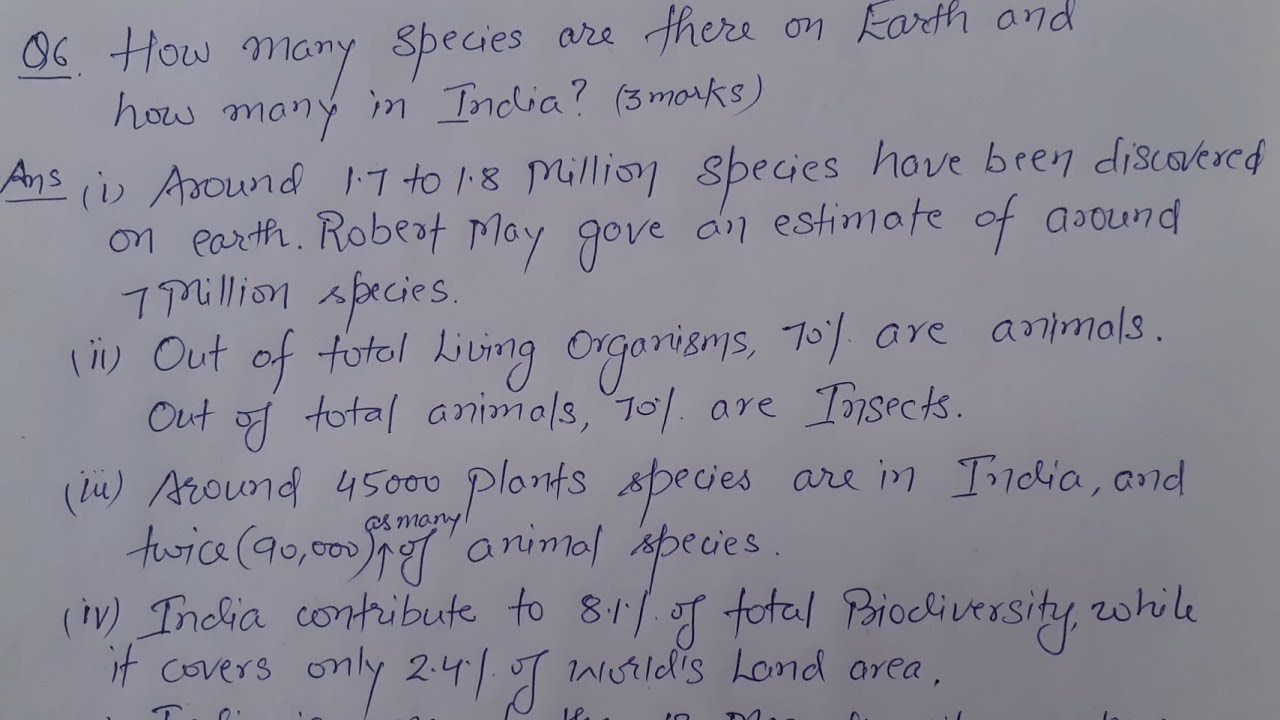 Q6. How many species are there on Earth and
how many in India? (3 marks)
Ans (i) Around 1.7 to 1.8 Million species have been discovered
on earth. Robert May gave an estimate of around
7 Million species.
(ii) Out of total Living Organisms, 70% are animals.
Out of total animals, 70% are Insects.
(iii) Around 45000 plants species are in India, and
as many
twice (90,000) ↑ of animal species.
(iv) India contribute to 8.1% of total Biodiversity, while
it covers only 2.4% of world's Land area.
India